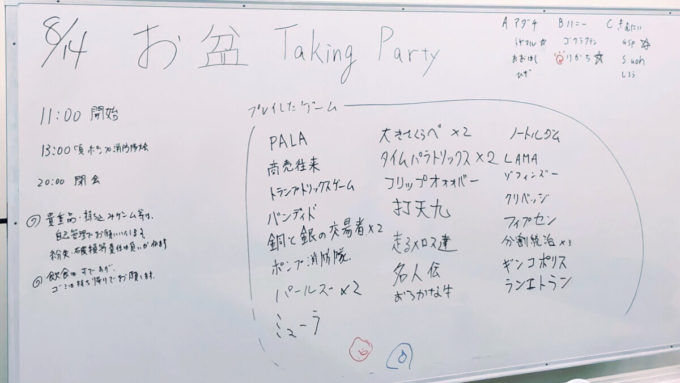 8/14 お盆 Taking Party
11:00 開始
13:00頃 ポンプ消防隊
20:00 閉会
貴重品・持込みゲーム等は、
自己管理でお願いいたします
紛失・破損等責任は負いかねます
飲食は すでありが、
ゴミは持ち帰りでお願います。
A アダチ B ハニー C
おおはし りかち☆ Suoh
プレイしたゲーム
PALA
商売往来
トランプトリックスゲーム
バンディド
銅と銀の交易者×2
ポンプ消防隊
パールズ×2
ミューラ
大きさくらべ×2
タイムパラトリックス×2
フリップオォォバー
打天九
走るメロス達
名人伝
おろかな牛
ノートルダム
LAMA
ゾフィンズー
クリベッジ
フィプセン
分割統治×3
ギンコポリス
ランエトラン